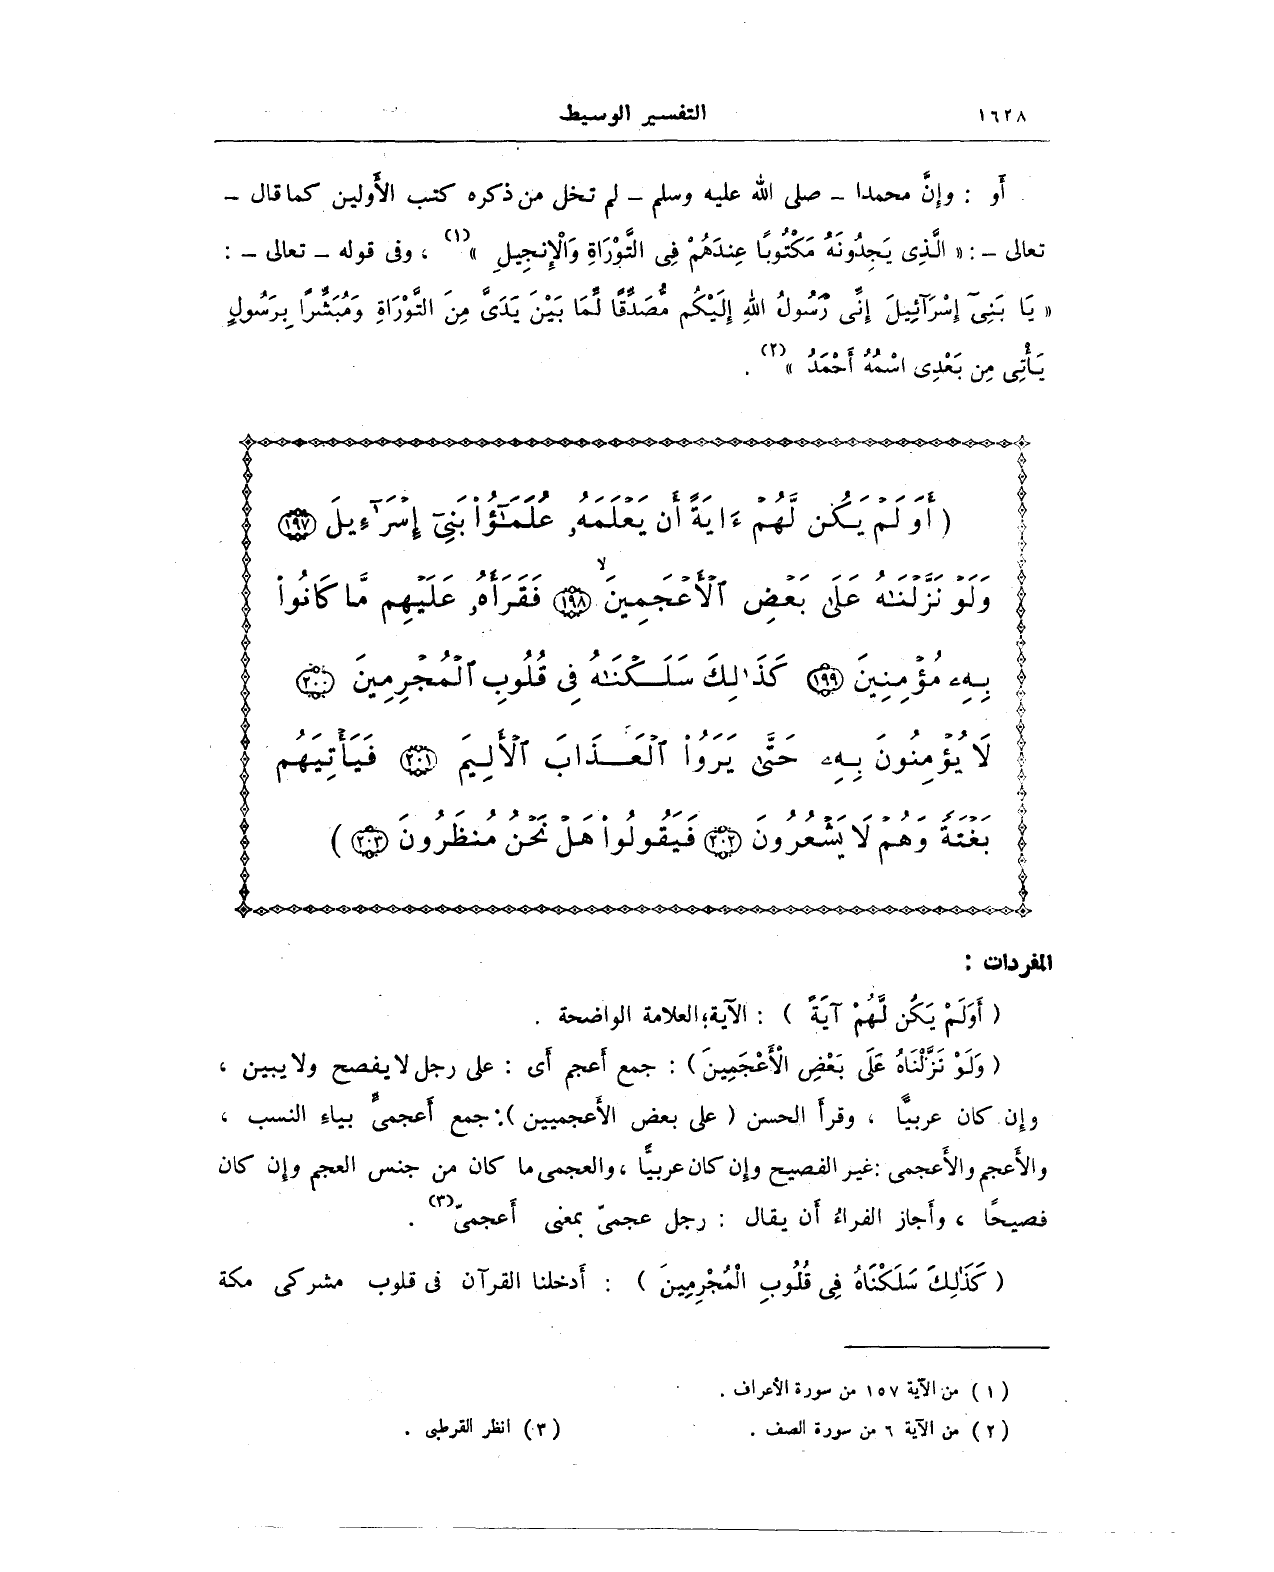 ١٦٢٨ التفسير الوسيط
أو : وإنَّ محمدا – صلى الله عليه وسلم – لم تخل من ذكره كتب الأولين كما قال –
تعالى –: « الَّذِى يَجِدُونَهُ مَكْتُوبًا عِندَهُمْ فِى التَّوْرَاةِ وَالْإِنجِيلِ »(١) ، وفى قوله – تعالى – :
« يَا بَنِىٓ إِسْرَآئِيلَ إِنِّى رَسُولُ اللهِ إِلَيْكُم مُّصَدِّقًا لِّمَا بَيْنَ يَدَىَّ مِنَ التَّوْرَاةِ وَمُبَشِّرًا بِرَسُولٍ
يَأْتِى مِن بَعْدِى اسْمُهُ أَحْمَدُ »(٢) .
( أَوَلَمْ يَكُن لَّهُمْ ءَايَةً أَن يَعْلَمَهُۥ عُلَمَٰٓؤُا۟ بَنِىٓ إِسْرَٰٓءِيلَ ١٩٧
وَلَوْ نَزَّلْنَٰهُ عَلَىٰ بَعْضِ ٱلْأَعْجَمِينَ ١٩٨ فَقَرَأَهُۥ عَلَيْهِم مَّا كَانُوا۟
بِهِۦ مُؤْمِنِينَ ١٩٩ كَذَٰلِكَ سَلَكْنَٰهُ فِى قُلُوبِ ٱلْمُجْرِمِينَ ٢٠٠
لَا يُؤْمِنُونَ بِهِۦ حَتَّىٰ يَرَوُا۟ ٱلْعَذَابَ ٱلْأَلِيمَ ٢٠١ فَيَأْتِيَهُم
بَغْتَةً وَهُمْ لَا يَشْعُرُونَ ٢٠٢ فَيَقُولُوا۟ هَلْ نَحْنُ مُنظَرُونَ ٢٠٣ )
المفردات :
( أَوَلَمْ يَكُن لَّهُمْ آيَةً ) : الآية؛العلامة الواضحة .
( وَلَوْ نَزَّلْنَاهُ عَلَى بَعْضِ الْأَعْجَمِينَ) : جمع أعجم أى : على رجل لا يفصح ولا يبين ،
وإن كان عربيًّا ، وقرأ الحسن ( على بعض الأعجميين ): جمع أعجمىٍّ بياء النسب ،
والأعجم والأعجمى :غير الفصيح وإن كان عربيًّا ، والعجمى ما كان من جنس العجم وإن كان
فصيحًا ، وأجاز الفراءُ أن يقال : رجل عجمىّ بمعنى أعجمىّ(٣) .
( كَذَٰلِكَ سَلَكْنَاهُ فِى قُلُوبِ الْمُجْرِمِينَ ) : أدخلنا القرآن فى قلوب مشركى مكة
(١) من الآية ١٥٧ من سورة الأعراف .
(٢) من الآية ٦ من سورة الصف . (٣) انظر القرطبى .